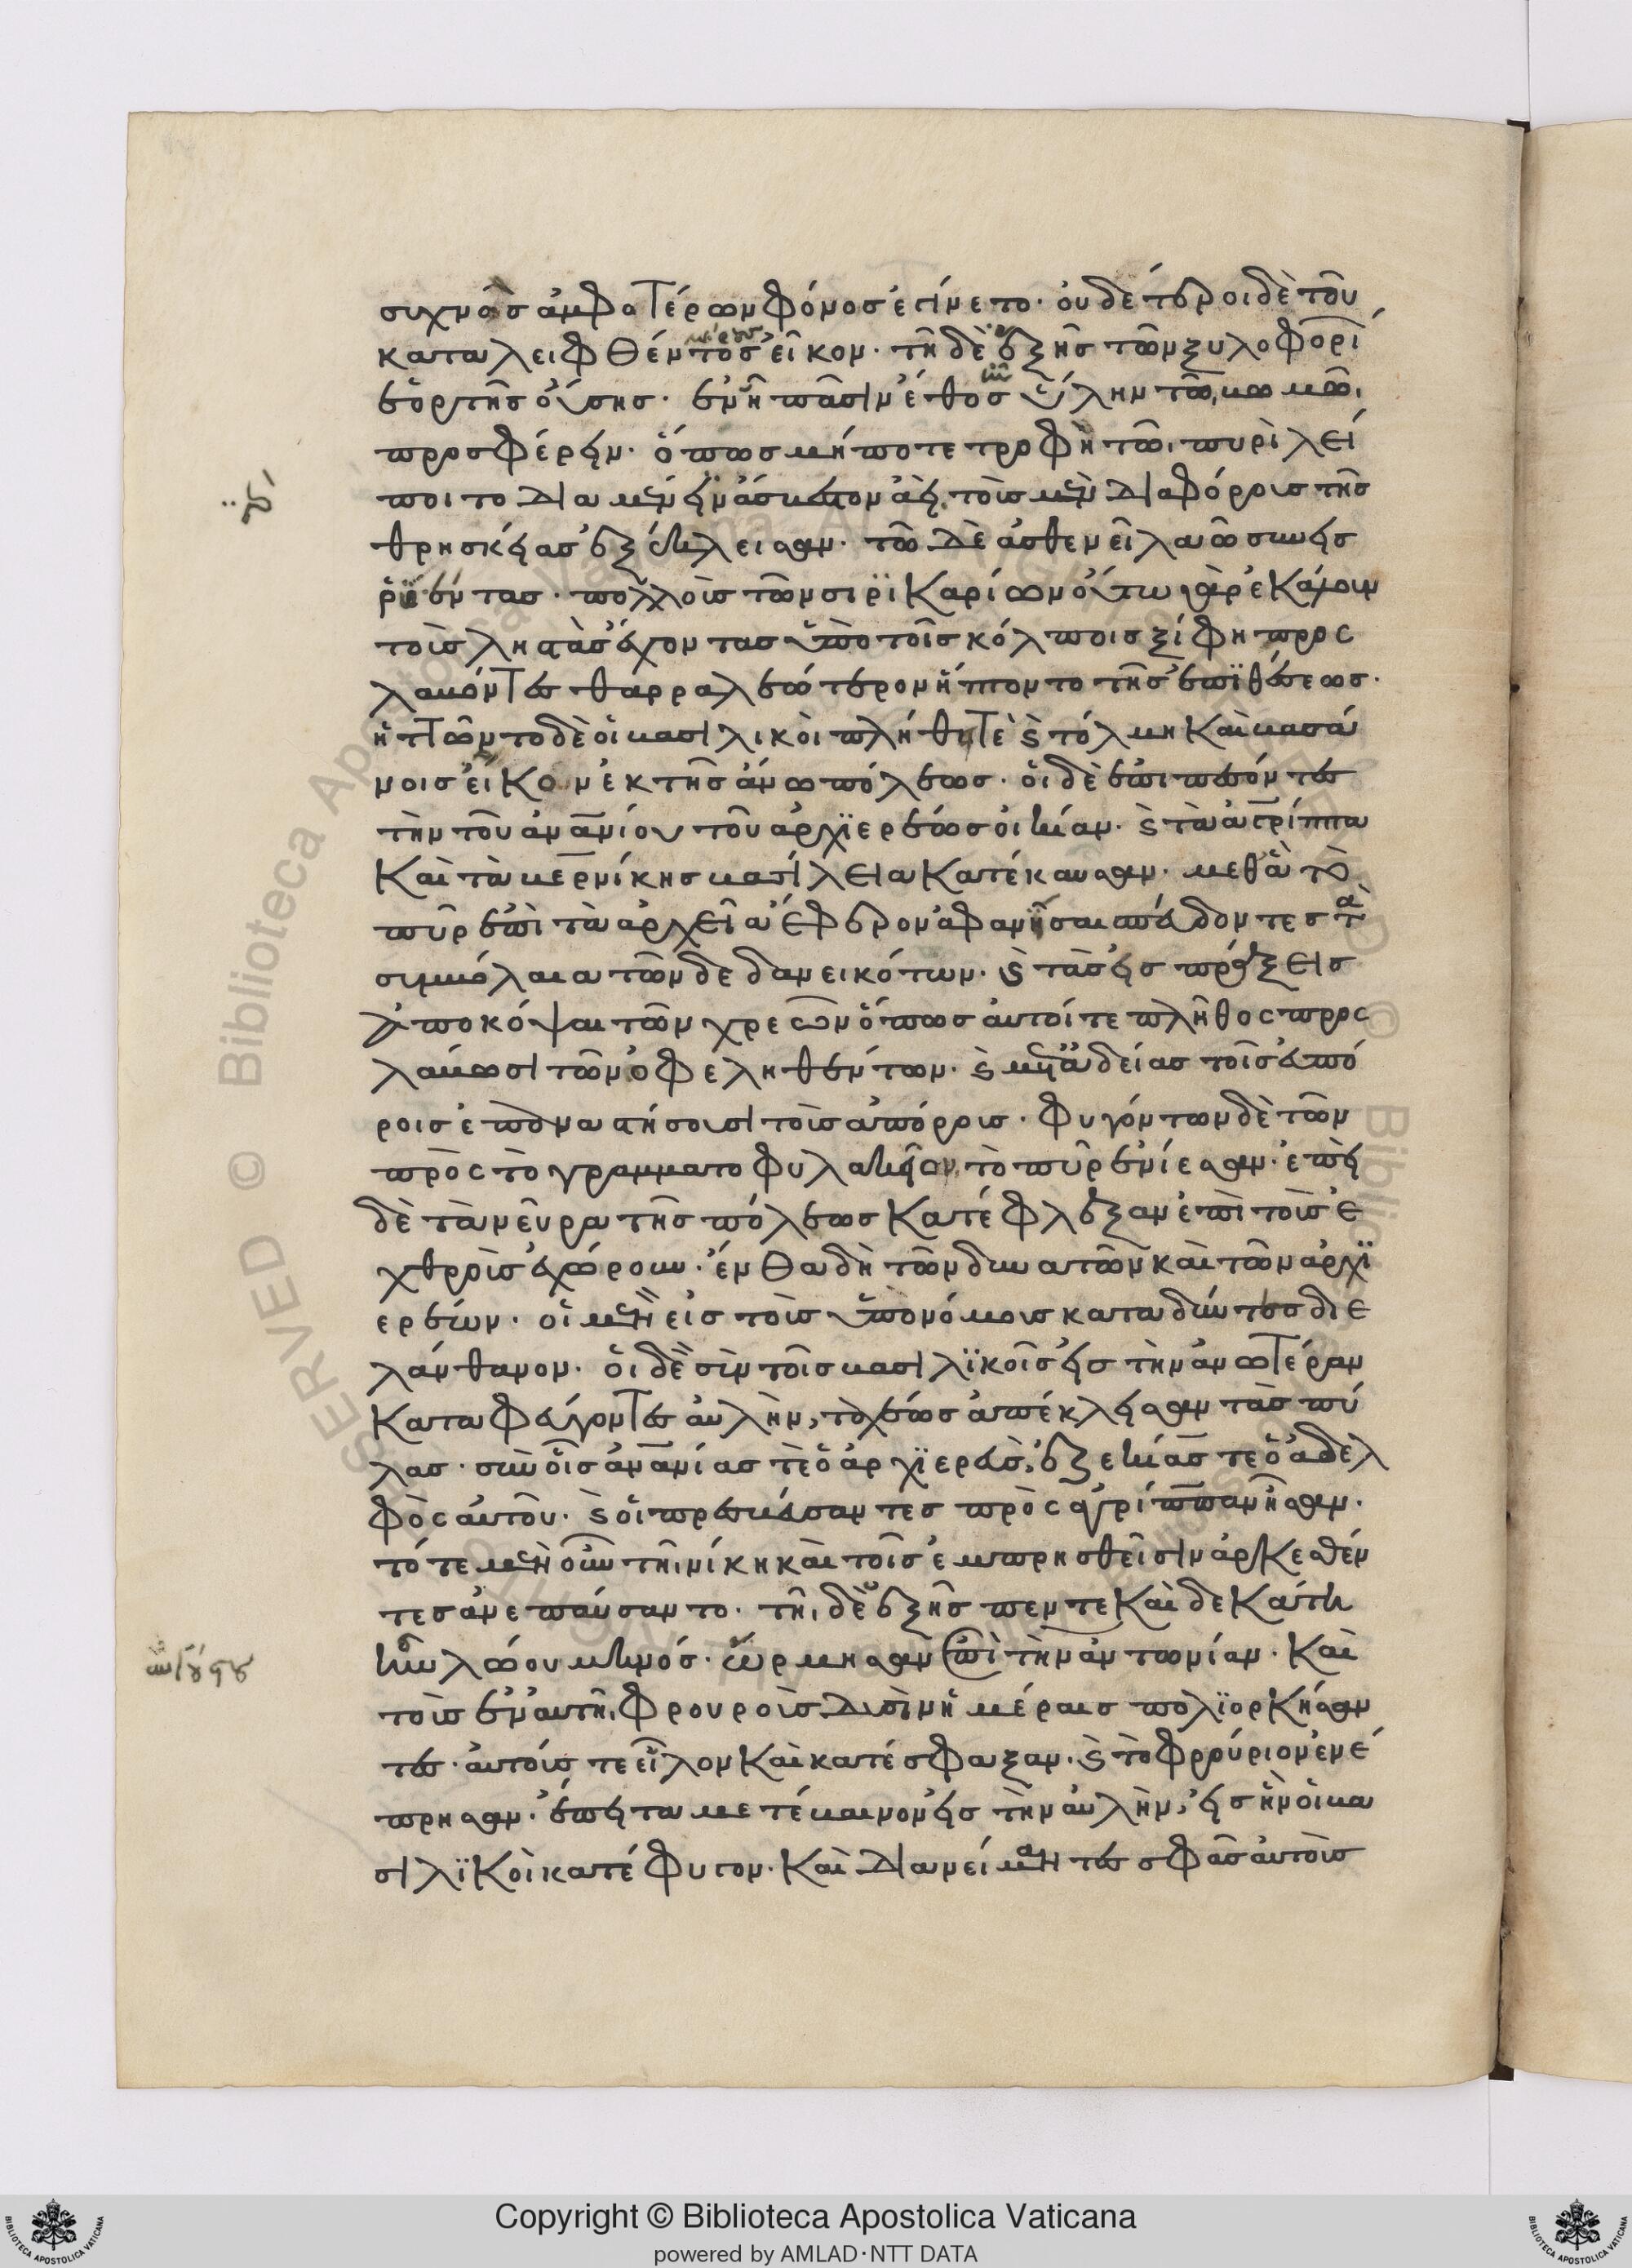 συχνὸς ἀμφοτέρων φόνος ἐγίνετο· οὐδέτεροι δὲ τοῦ
καταλειφθέντος μέρους εἶκον· τῇ δὲ ἑξῆς τῶν ξυλοφορί
ἑορτῆς οὔσης· ἐν ᾗ πᾶσιν ἔθος ἦν ὕλην τῷ βωμῷ
προσφέρειν· ὅπως μήποτε τροφὴ τῷ πυρὶ λεί
ποιτο διαμένειν ἄσβεστον ἀεί, τοὺς μὲν διαφόρους τῆς
θρησκείας ἐξέκλεισαν· τῷ δὲ ἀσθενεῖ λαῷ συνεισ
ρυέντας· πολλοὺς τῶν σιρικαρίων οὕτω γὰρ ἐκάλουν
τοὺς λῃστὰς ἔχοντας ὑπὸ τοῖς κόλποις ξίφη προσ
λαβόντες θαρραλεώτερον ἥπτοντο τῆς ἐπιθέσεως·
ἡττῶντο δὲ οἱ βασιλικοὶ πλήθει τὲ καὶ τόλμῃ καὶ βασά
νοις εἶκον ἐκ τῆς ἄνω πόλεως· οἱ δὲ ἐπιπεσόντες
τήν τοῦ ἀνανίου τοῦ ἀρχιερέως οἰκίαν· καὶ τὰ ἀγρίππα
καὶ τὰ βερνίκης βασίλεια κατέκαυσαν· μεθ' ἃ τὸ
πῦρ ἐπὶ τὰ ἀρχεῖα ἔφερον ἀφανῆσαι σπεύδοντες τὰ
συμβόλαια τῶν δεδανεικότων· καὶ τὰς εἰσπράξεις
ἀποκόψαι τῶν χρεῶν ὅπως αὐτοί τε πλῆθος προσ
λάβωσι τῶν ὠφεληθέντων· καὶ μετ' ἀδείας τοῖς εὐπό
ροις ἐπαναστήσουσι τοὺς ἀπόρους· φυγόντων δὲ τῶν
πρὸς τὸ γραμματοφυλακεῖον, τὸ πῦρ ἐνίεσαν· ἐπεὶ
δὲ τὰ νεῦρα τῆς πόλεως κατέφλεξαν ἐπὶ τοὺς ἐ
χθροὺς ἐχώρουν· ἔνθα δὴ τῶν δυνατῶν καὶ τῶν ἀρχι
ερέων· οἱ μὲν εἰς τοὺς ὑπονόμους καταδύντες διε
λάνθανον· οἱ δὲ σὺν τοῖς βασιλικοῖς εἰς τὴν ἀνωτέραν
καταφυγόντες αὐλὴν, ταχέως ἀπέκλεισαν τὰς πύ
λας· σὺν οἷς ἀνανίας τὲ ὁ ἀρχιερεὺς, ἐξεκίας τε ὁ ἀδελ
φὸς αὐτοῦ· καὶ οἱ πρεσβεύσαντες πρὸς ἀγρίππαν ἦσαν·
τότε μὲν οὖν τῇ νίκῃ καὶ τοῖς ἐμπρησθεῖσιν ἀρκεσθέν
τες ἀνεπαύσαντο· τῇ δὲ ἑξῆς πεντεκαιδεκάτη
ἦν λώου μηνός· ὥρμησαν ἐπὶ τὴν ἀντωνίαν· καὶ
τοὺς ἐν αὐτῇ φρουροὺς δυσὶν ἡμέραις πολιορκήσαν
τες· αὐτούς τε εἷλον καὶ κατέσφαξαν· καὶ τὸ φρούριον ἐνέ
πρησαν· ἔπειτα μετέβαινον εἰς τὴν αὐλὴν, εἰς ἣν οἱ βα
σιλικοὶ κατέφυγον· καὶ διανείμαντες σφᾶς αὐτοὺς